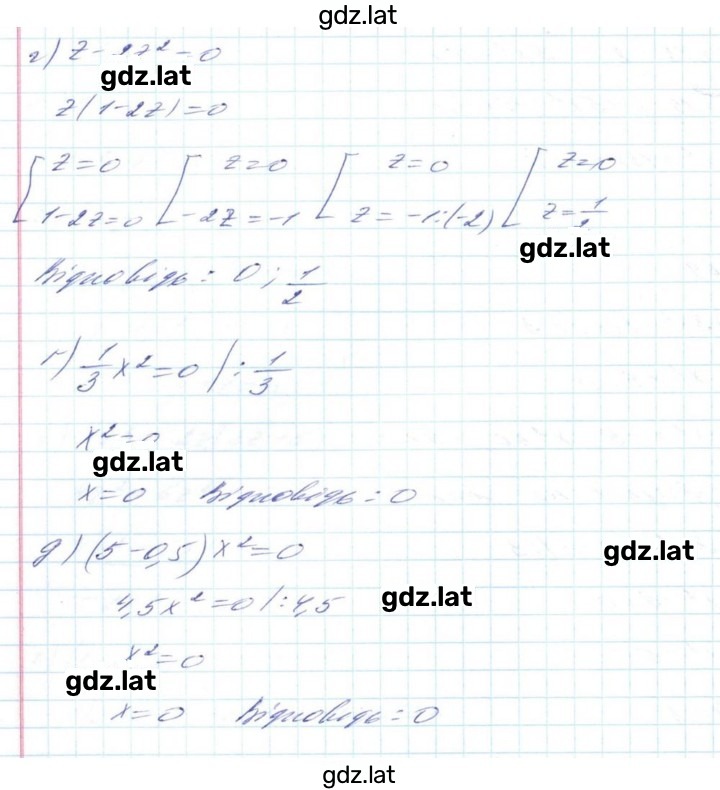 gdz.lat
г) z - 2z² = 0
gdz.lat
z(1-2z) = 0
[ z = 0 [ z = 0 [ z = 0 [ z = 0
1-2z = 0 -2z = -1 z = -1:(-2) z = 1/2
gdz.lat
Відповідь: 0; 1/2
ґ) 1/3 x² = 0 | : 1/3
x² = 0
gdz.lat
x = 0 Відповідь: 0
д) (5 - 0,5) x² = 0
gdz.lat
4,5x² = 0 | : 4,5
gdz.lat
x² = 0
gdz.lat
x = 0 Відповідь: 0
gdz.lat